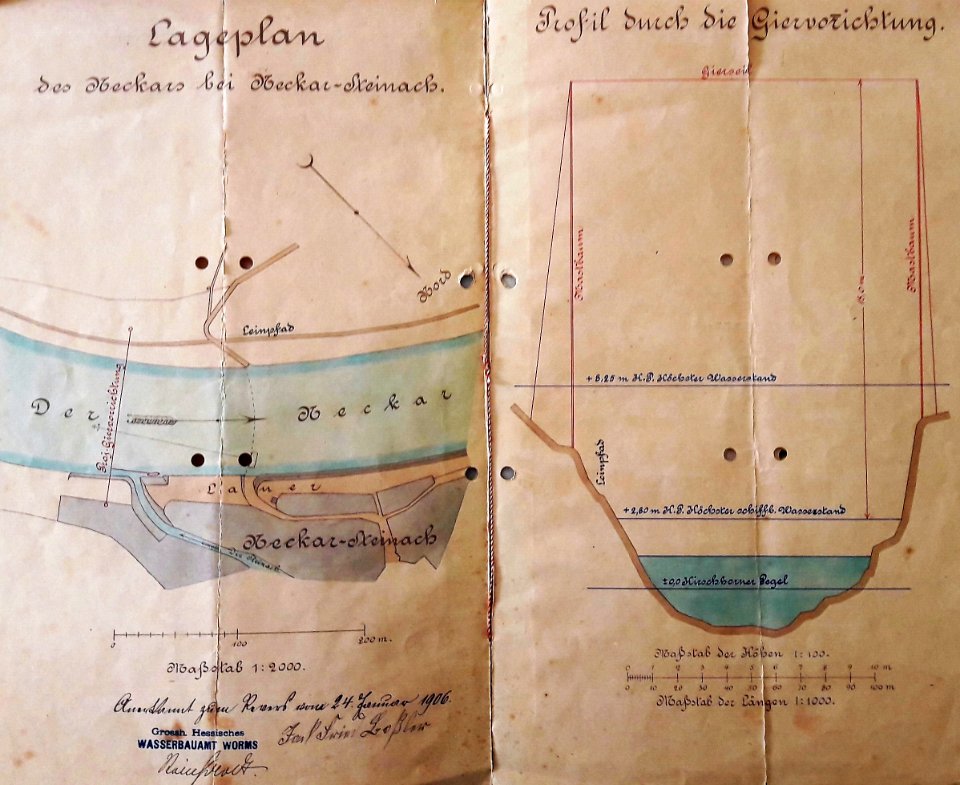 Lageplan
des Neckars bei Neckar-Steinach.
Nord
Leinpfad
Proj. Giervorrichtung
Der Neckar
Lauer
Neckar-Steinach
Die Steinach
0 100 200 m.
Maßstab 1:2000.
Anerkannt zum Revers vom 24. Januar 1906.
Grossh. Hessisches
WASSERBAUAMT WORMS
Profil durch die Giervorichtung.
Gierseil
Mastbaum
Mastbaum
18.0 m
+ 5,25 m H.P. Höchster Wasserstand
Leinpfad
+ 2,80 m H.P. Höchster schiffb. Wasserstand
±0,0 Hirschhorner Pegel
Maßstab der Höhen 1:100.
0 1 2 3 4 5 6 7 8 9 10 m
0 10 20 30 40 50 60 70 80 90 100 m
Maßstab der Längen 1:1000.